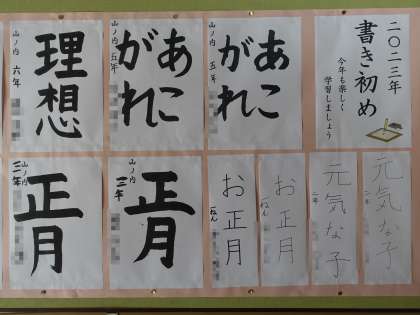 二〇二三年
書き初め
今年も楽しく
学習しましょう
あこ
がれ
山ノ内 五年
あこ
がれ
山ノ内 五年
理想
山ノ内 六年
元気な子
二年
元気な子
二年
お正月
一ねん
お正月
正月
山ノ内
三年
正月
山ノ内
三年